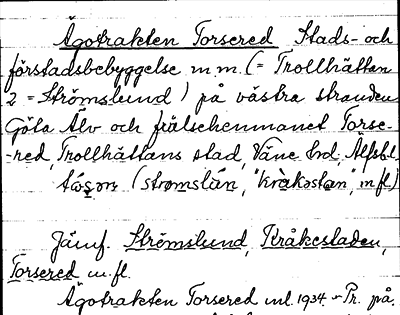 Ägotrakten Torsered Stads- och
förstadsbebyggelse m m. (= Trollhättan
2 = Strömslund) på västra stranden
Göta Älv och frälsehemmanet Torse-
-red, Trollhättans stad, Väne hd, Älfsbl.
(strømslún, "kråkəstan", m fl)
Jämf. Strömslund, Kråkestaden,
Torsered m. fl.
Ägotrakten Torsered inl. 1934. - Pr. på.